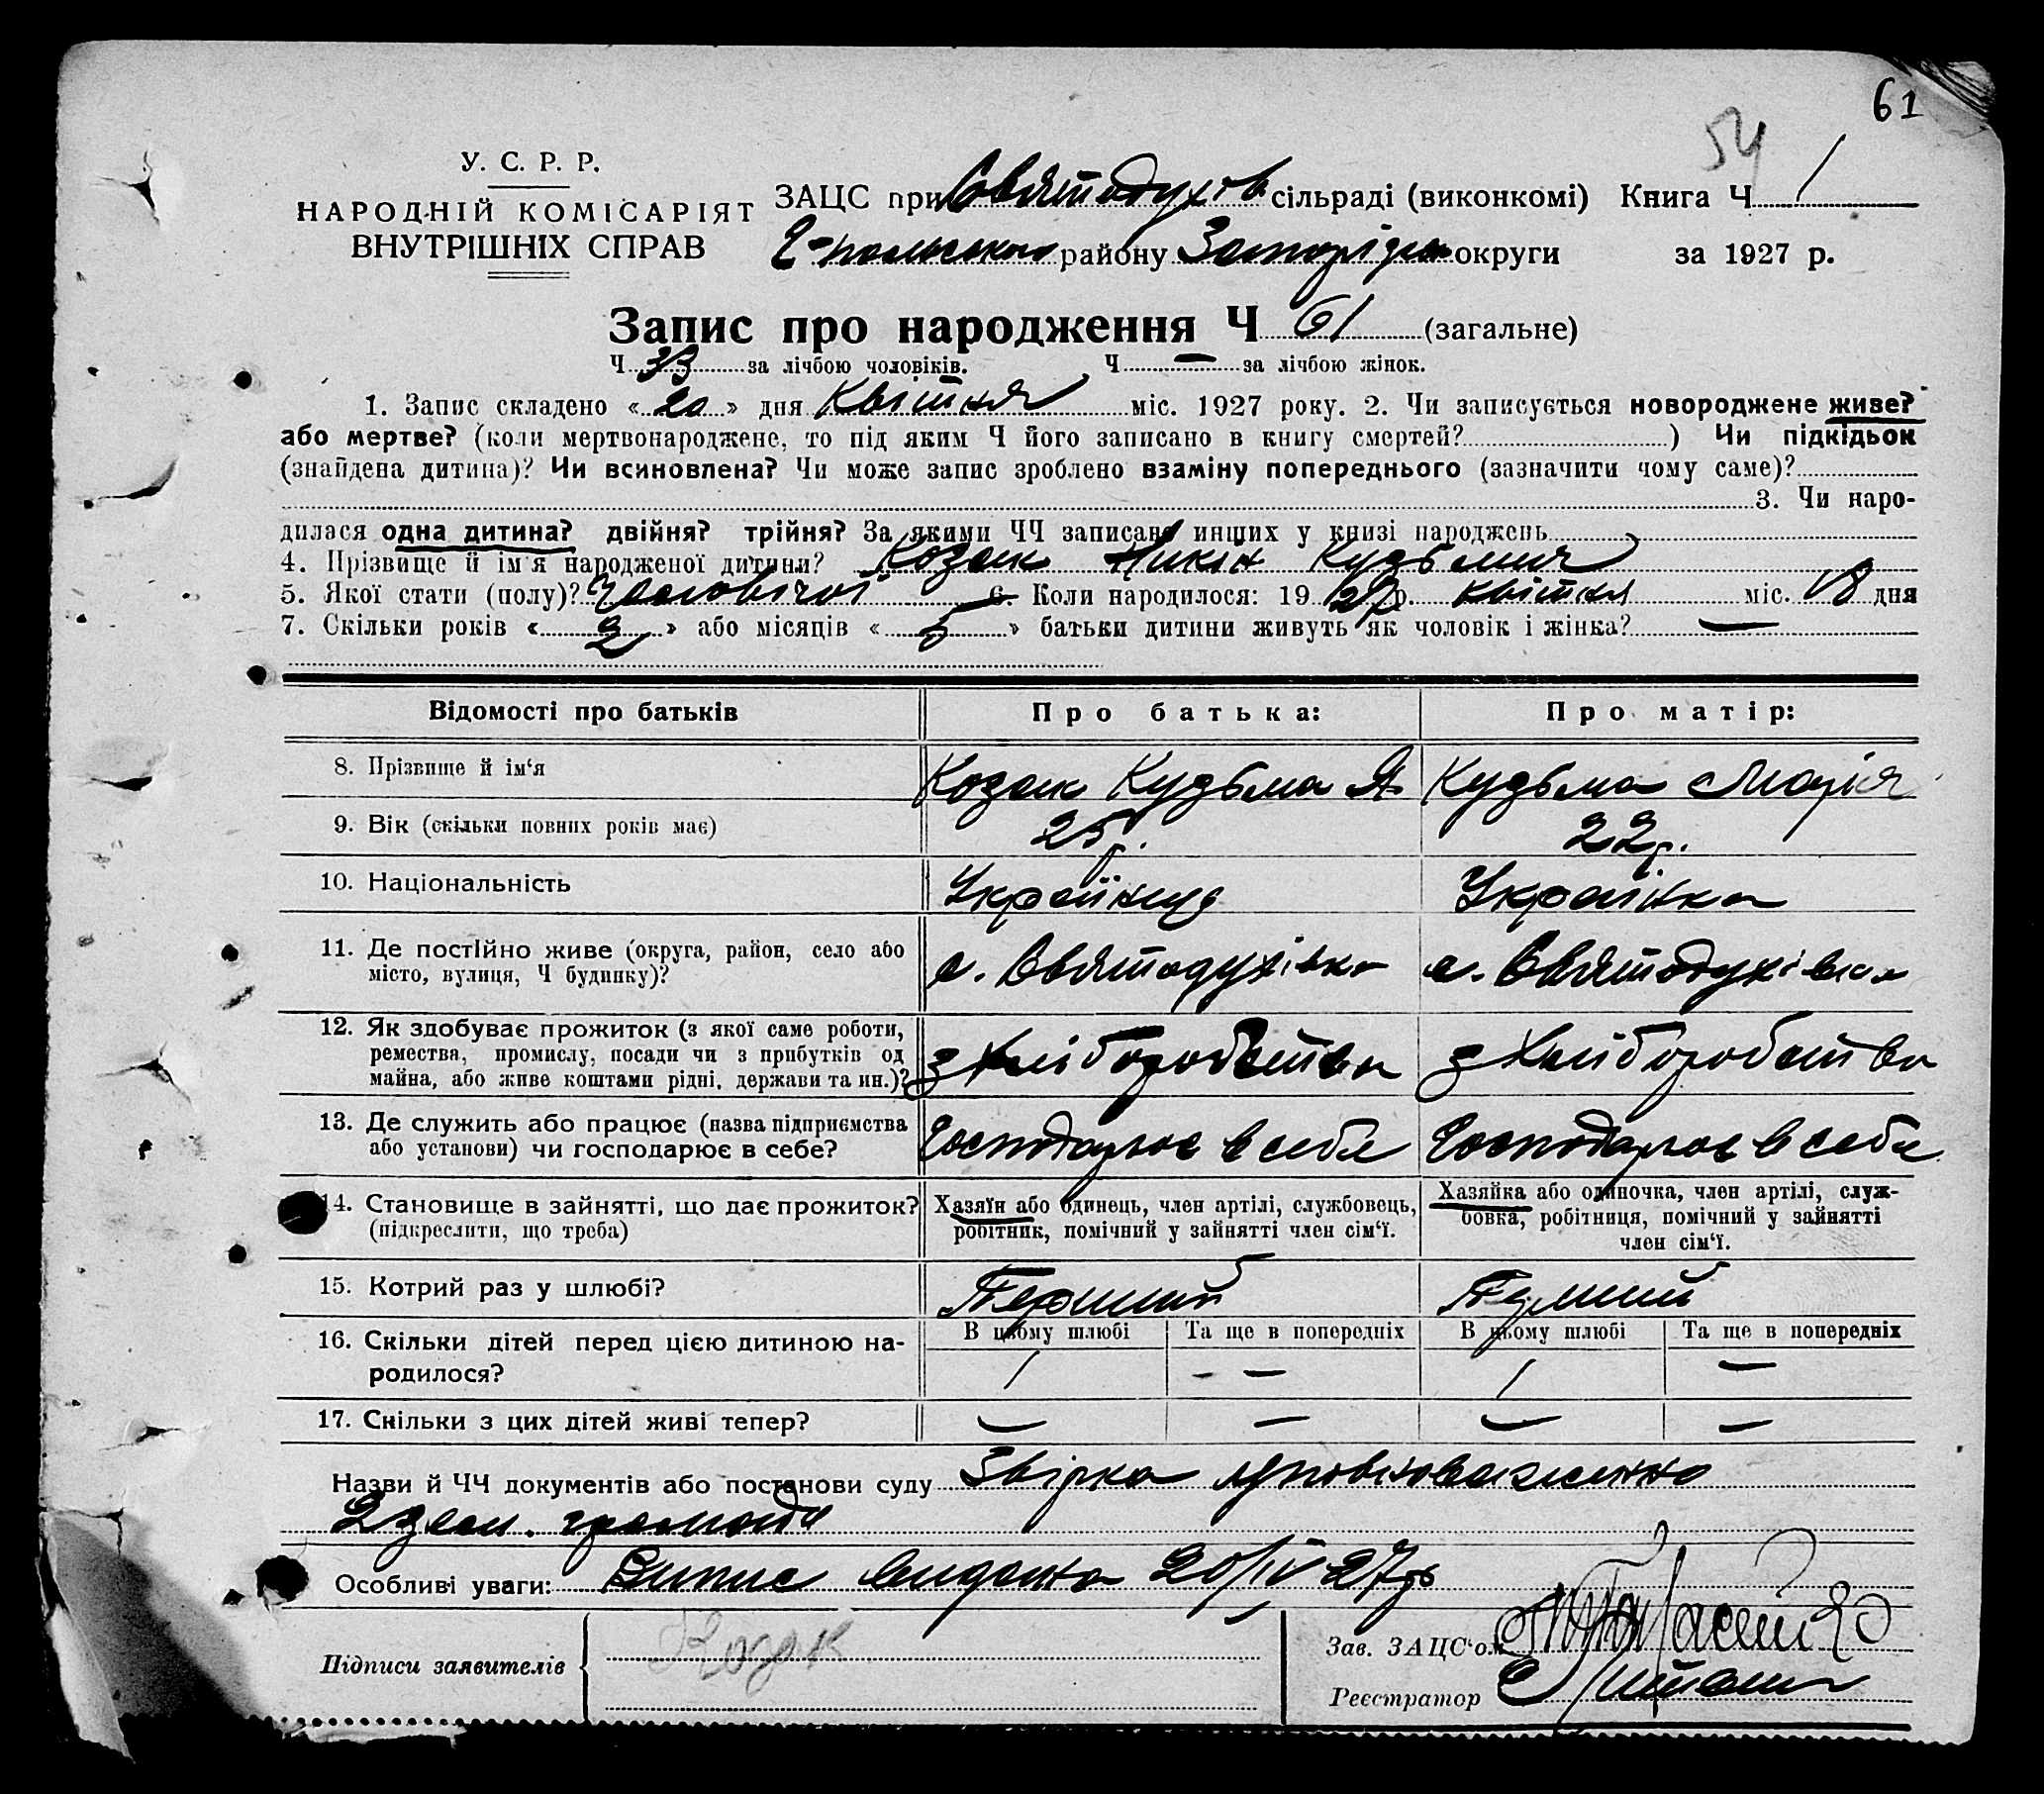 61
54
У. С. Р. Р.
НАРОДНІЙ КОМІСАРІЯТ
ВНУТРІШНІХ СПРАВ
ЗАЦС при Святодухів сільраді (виконкомі) Книга Ч 1
району Запорізьк округи за 1927 р.
Запис про народження Ч 61 (загальне)
Ч 33 за лічбою чоловіків. Ч — за лічбою жінок.
1. Запис складено «20» дня Квітня міс. 1927 року. 2. Чи записується новороджене живе?
або мертве? (коли мертвонароджене, то під яким Ч його записано в книгу смертей?) Чи підкідьок
(знайдена дитина)? Чи всиновлена? Чи може запис зроблено взаміну попереднього (зазначити чому саме)?
3. Чи наро-
дилася одна дитина? двійня? трійня? За якими ЧЧ записано инших у книзі народжень
4. Прізвище й ім'я народженої дитини? Козак Кудьмич
5. Якої стати (полу)? Чоловічої 6. Коли народилося: 1927 р. квітня міс. 18 дня
7. Скільки років «2» або місяців «5» батьки дитини живуть як чоловік і жінка? —
Відомості про батьків
Про батька:
Про матір:
8. Прізвище й ім'я
Козак Кудьма Я
Кудьма Марія
9. Вік (скільки повних років має)
25 р.
22 р.
10. Національність
Українць
Українка
11. Де постійно живе (округа, район, село або
місто, вулиця, Ч будинку)?
с. Святодухівка
с. Святодухівка
12. Як здобуває прожиток (з якої саме роботи,
ремества, промислу, посади чи з прибутків од
майна, або живе коштами рідні, держави та ин.)?
з Хліборобства
з Хліборобства
13. Де служить або працює (назва підприємства
або установи) чи господарює в себе?
Господарює в себе
Господарює в себе
14. Становище в зайнятті, що дає прожиток?
(підкреслити, що треба)
Хазяїн або одинець, член артілі, службовець,
робітник, помічний у зайнятті член сім'ї.
Хазяйка або одиночка, член артілі, служ-
бовка, робітниця, помічний у зайнятті
член сім'ї.
15. Котрий раз у шлюбі?
Перший
Перший
16. Скільки дітей перед цією дитиною на-
родилося?
В цьому шлюбі
Та ще в попередніх
В цьому шлюбі
Та ще в попередніх
1 — — 1 —
17. Скільки з цих дітей живі тепер?
— — — —
Назви й ЧЧ документів або постанови суду Звірка уповноваженно
громади
Особливі уваги: Випис видано 20/IV 27 р
Підписи заявителів
Козак
Зав. ЗАЦС'ом
Реєстратор